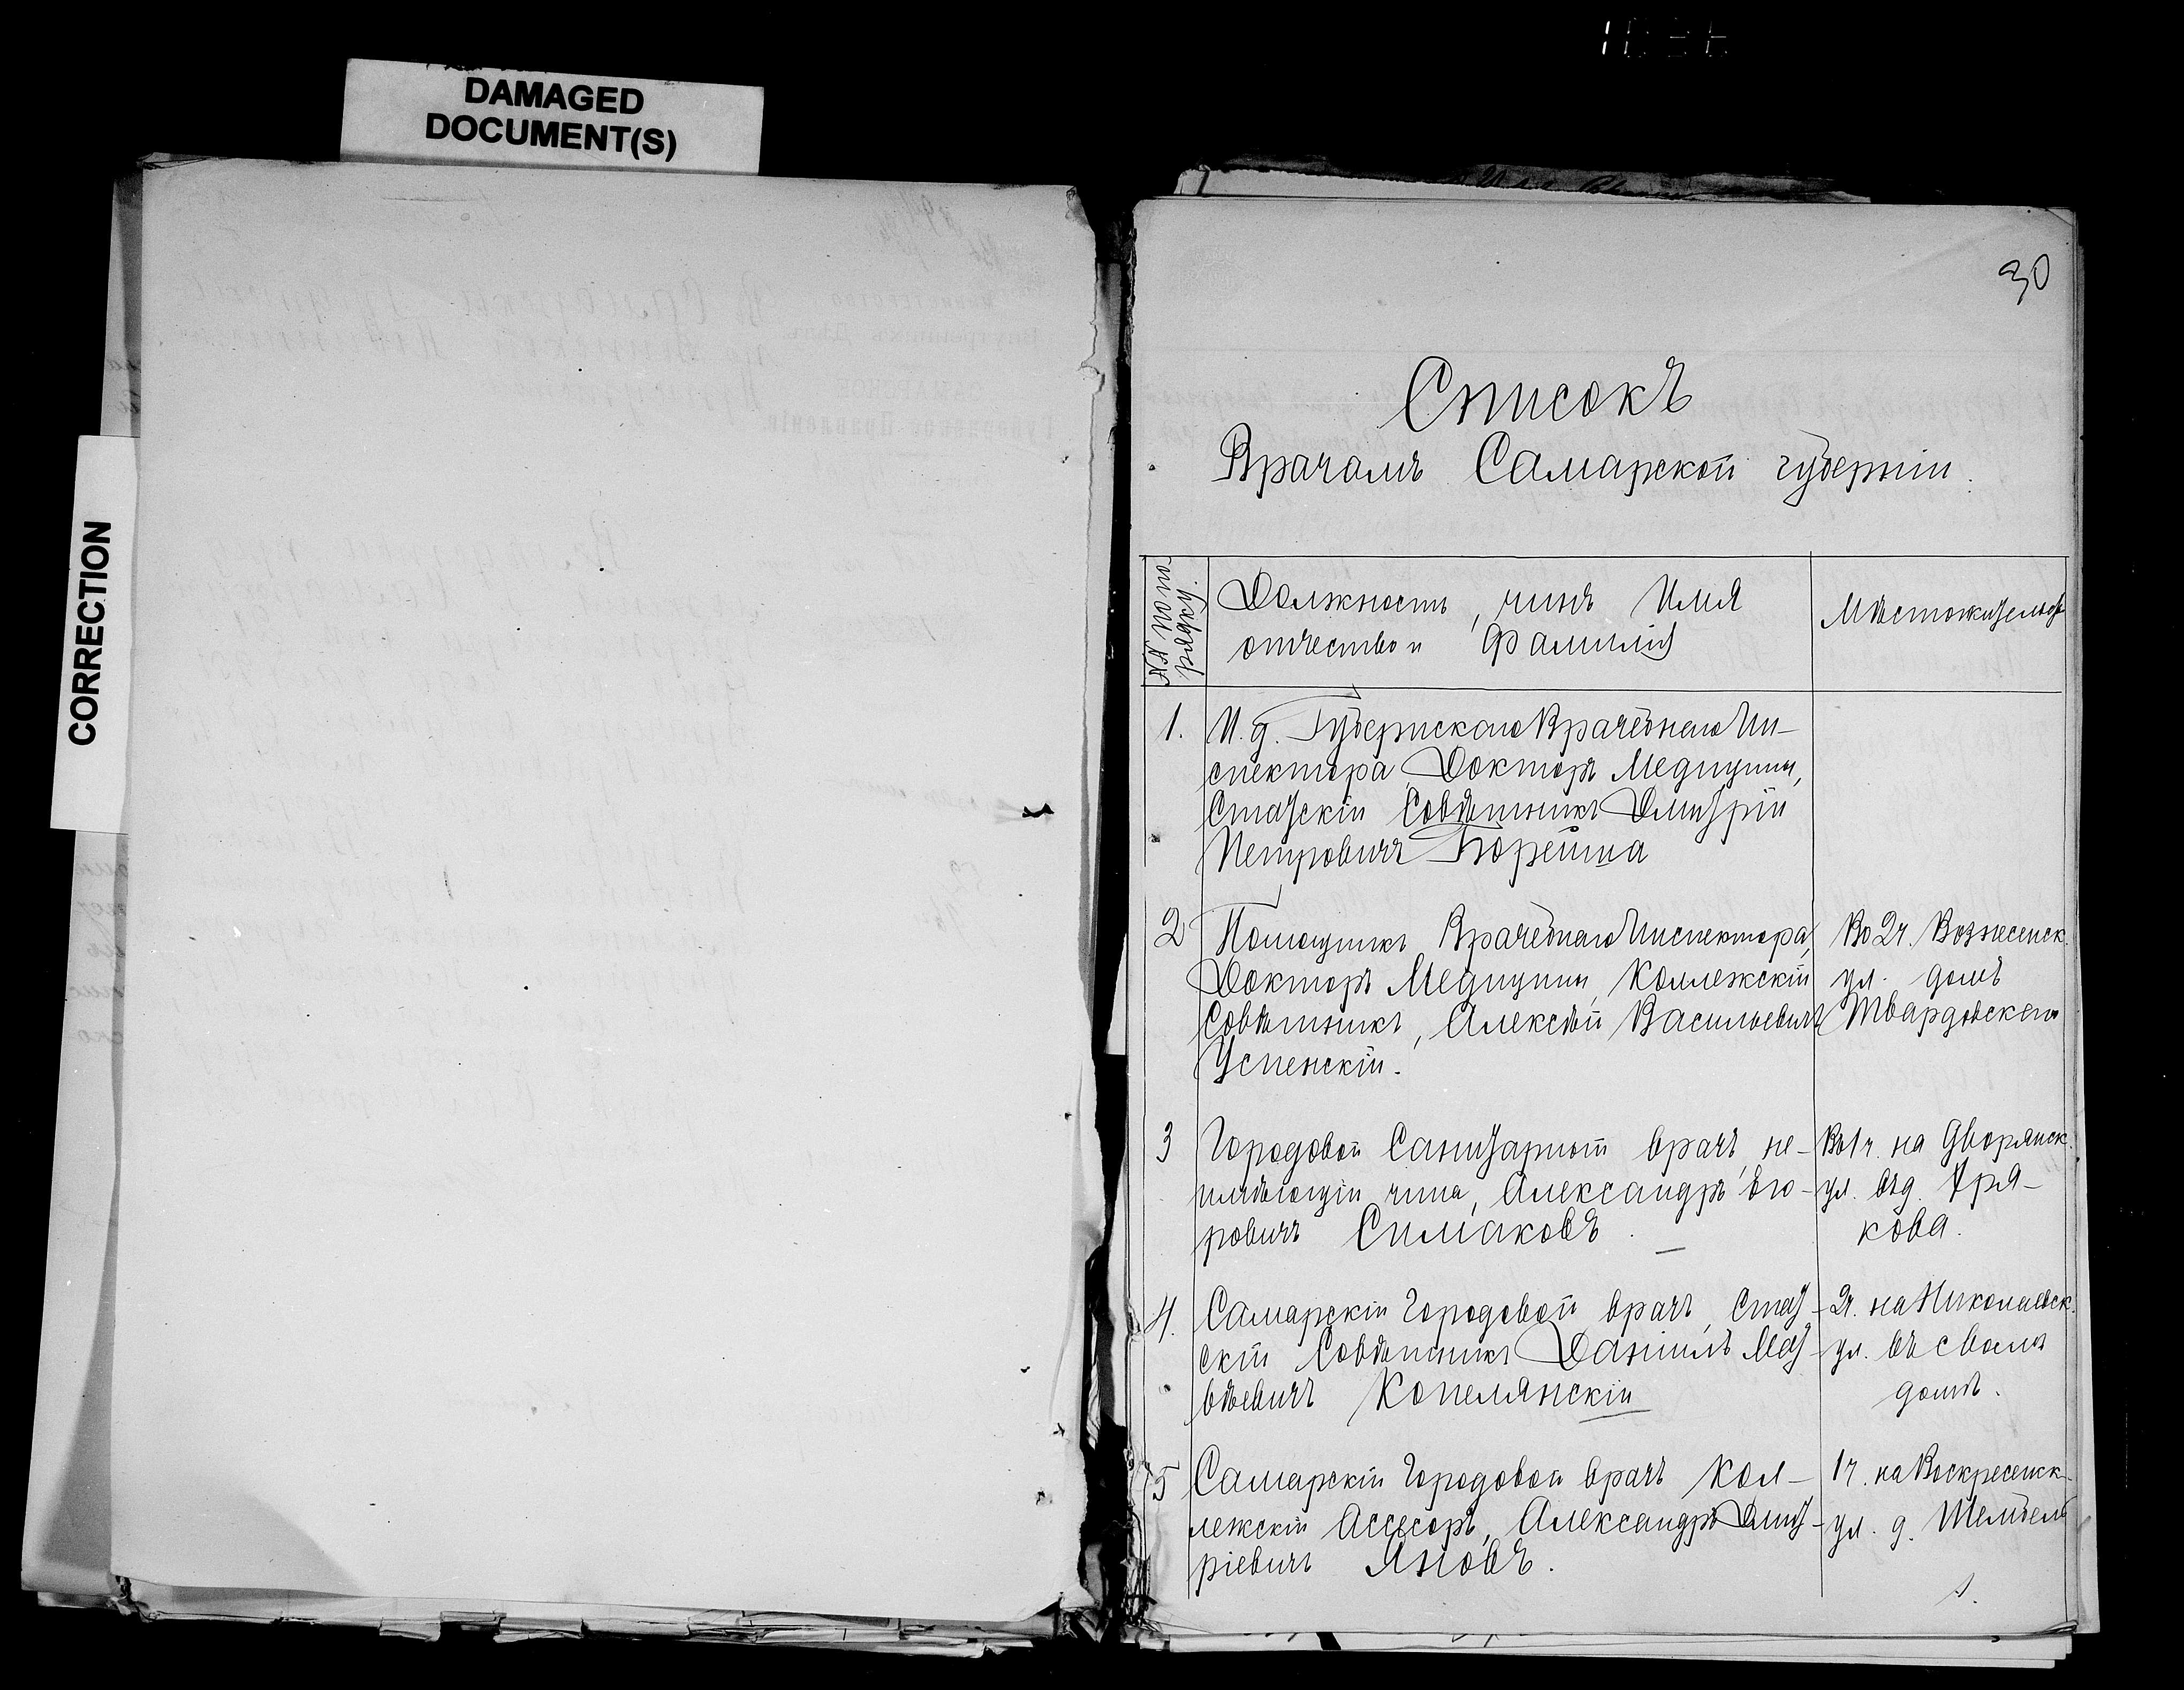 DAMAGED
DOCUMENT(S)
CORRECTION
30
Списокъ
Врачамъ Самарской губерніи.
№№ по по-
рядку.
Должность, чинъ Имя
отчество и Фамилія
Мѣстожительс
1.
И. д. Губернскаго Врачебнаго Ин-
спектора Докторъ Медицины,
Статскій Совѣтникъ Дмитрій
Петровичъ Борейша
2
Помощникъ Врачебнаго Инспектора,
Докторъ Медицины, Коллежскій
Совѣтникъ, Алексѣй Васильевичъ
Успенскій.
Во 2ч. Вознесенск.
ул. домъ
Твардовскаго
3
Городовой Санитарный врачъ, не-
имѣющій чина, Александръ Его-
ровичъ Симаковъ.
Въ 1ч. на Дворянск.
ул. въ д.
кова.
4.
Самарскій Городовой врачъ, Стат-
скій Совѣтникъ Даніилъ Мат-
вѣевичъ Копелянскій
2ч. на Николаевск.
ул. въ своемъ
домѣ.
5
Самарскій Городовой врачъ Кол-
лежскій Ассесоръ, Александръ Дмит-
ріевичъ Яновъ.
1ч. на Воскресенск.
ул. д.